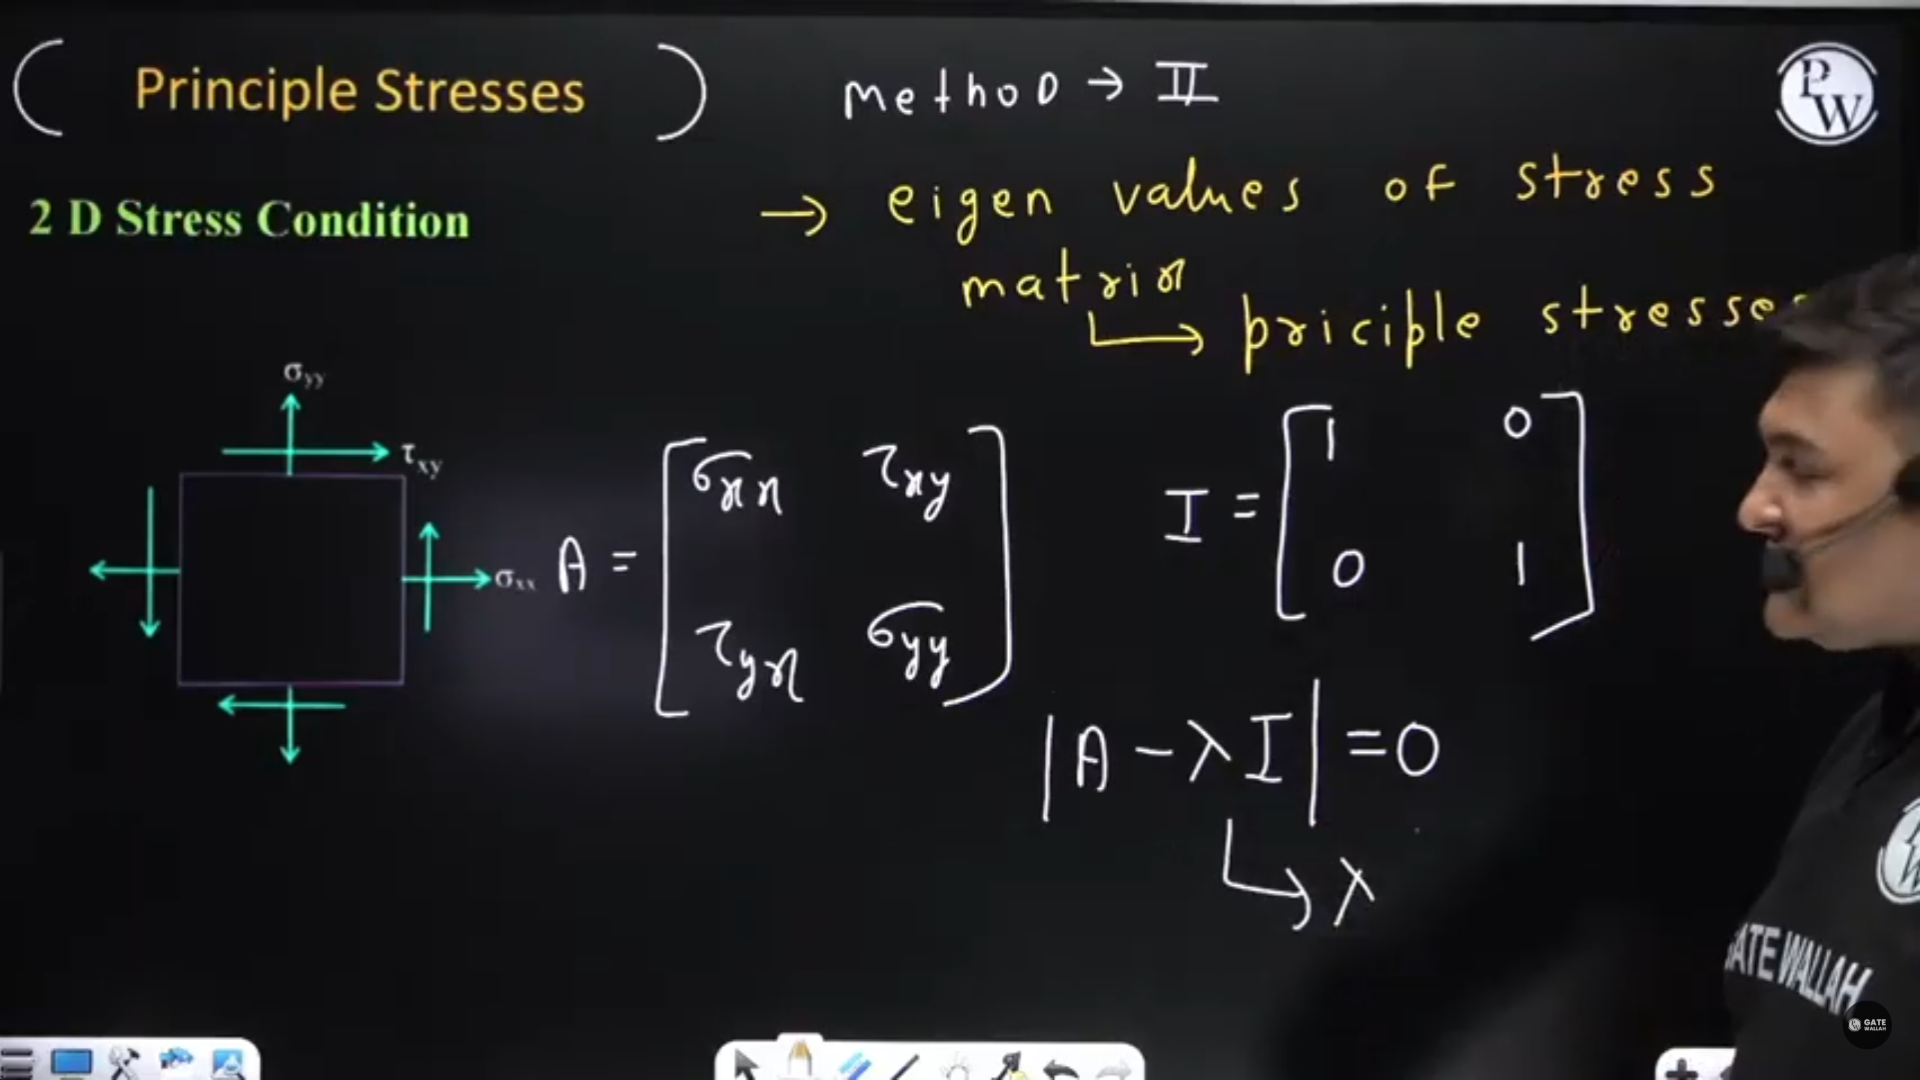 ( Principle Stresses )
Method → II
PW
2 D Stress Condition
→ eigen values of stress
matrix
↳ priciple stresses
σyy
τxy
σxx
A = [ σxx τxy
τyx σyy ]
I = [ 1 0
0 1 ]
|A - λI| = 0
↳ λ
GATE WALLAH
GATE
WALLAH